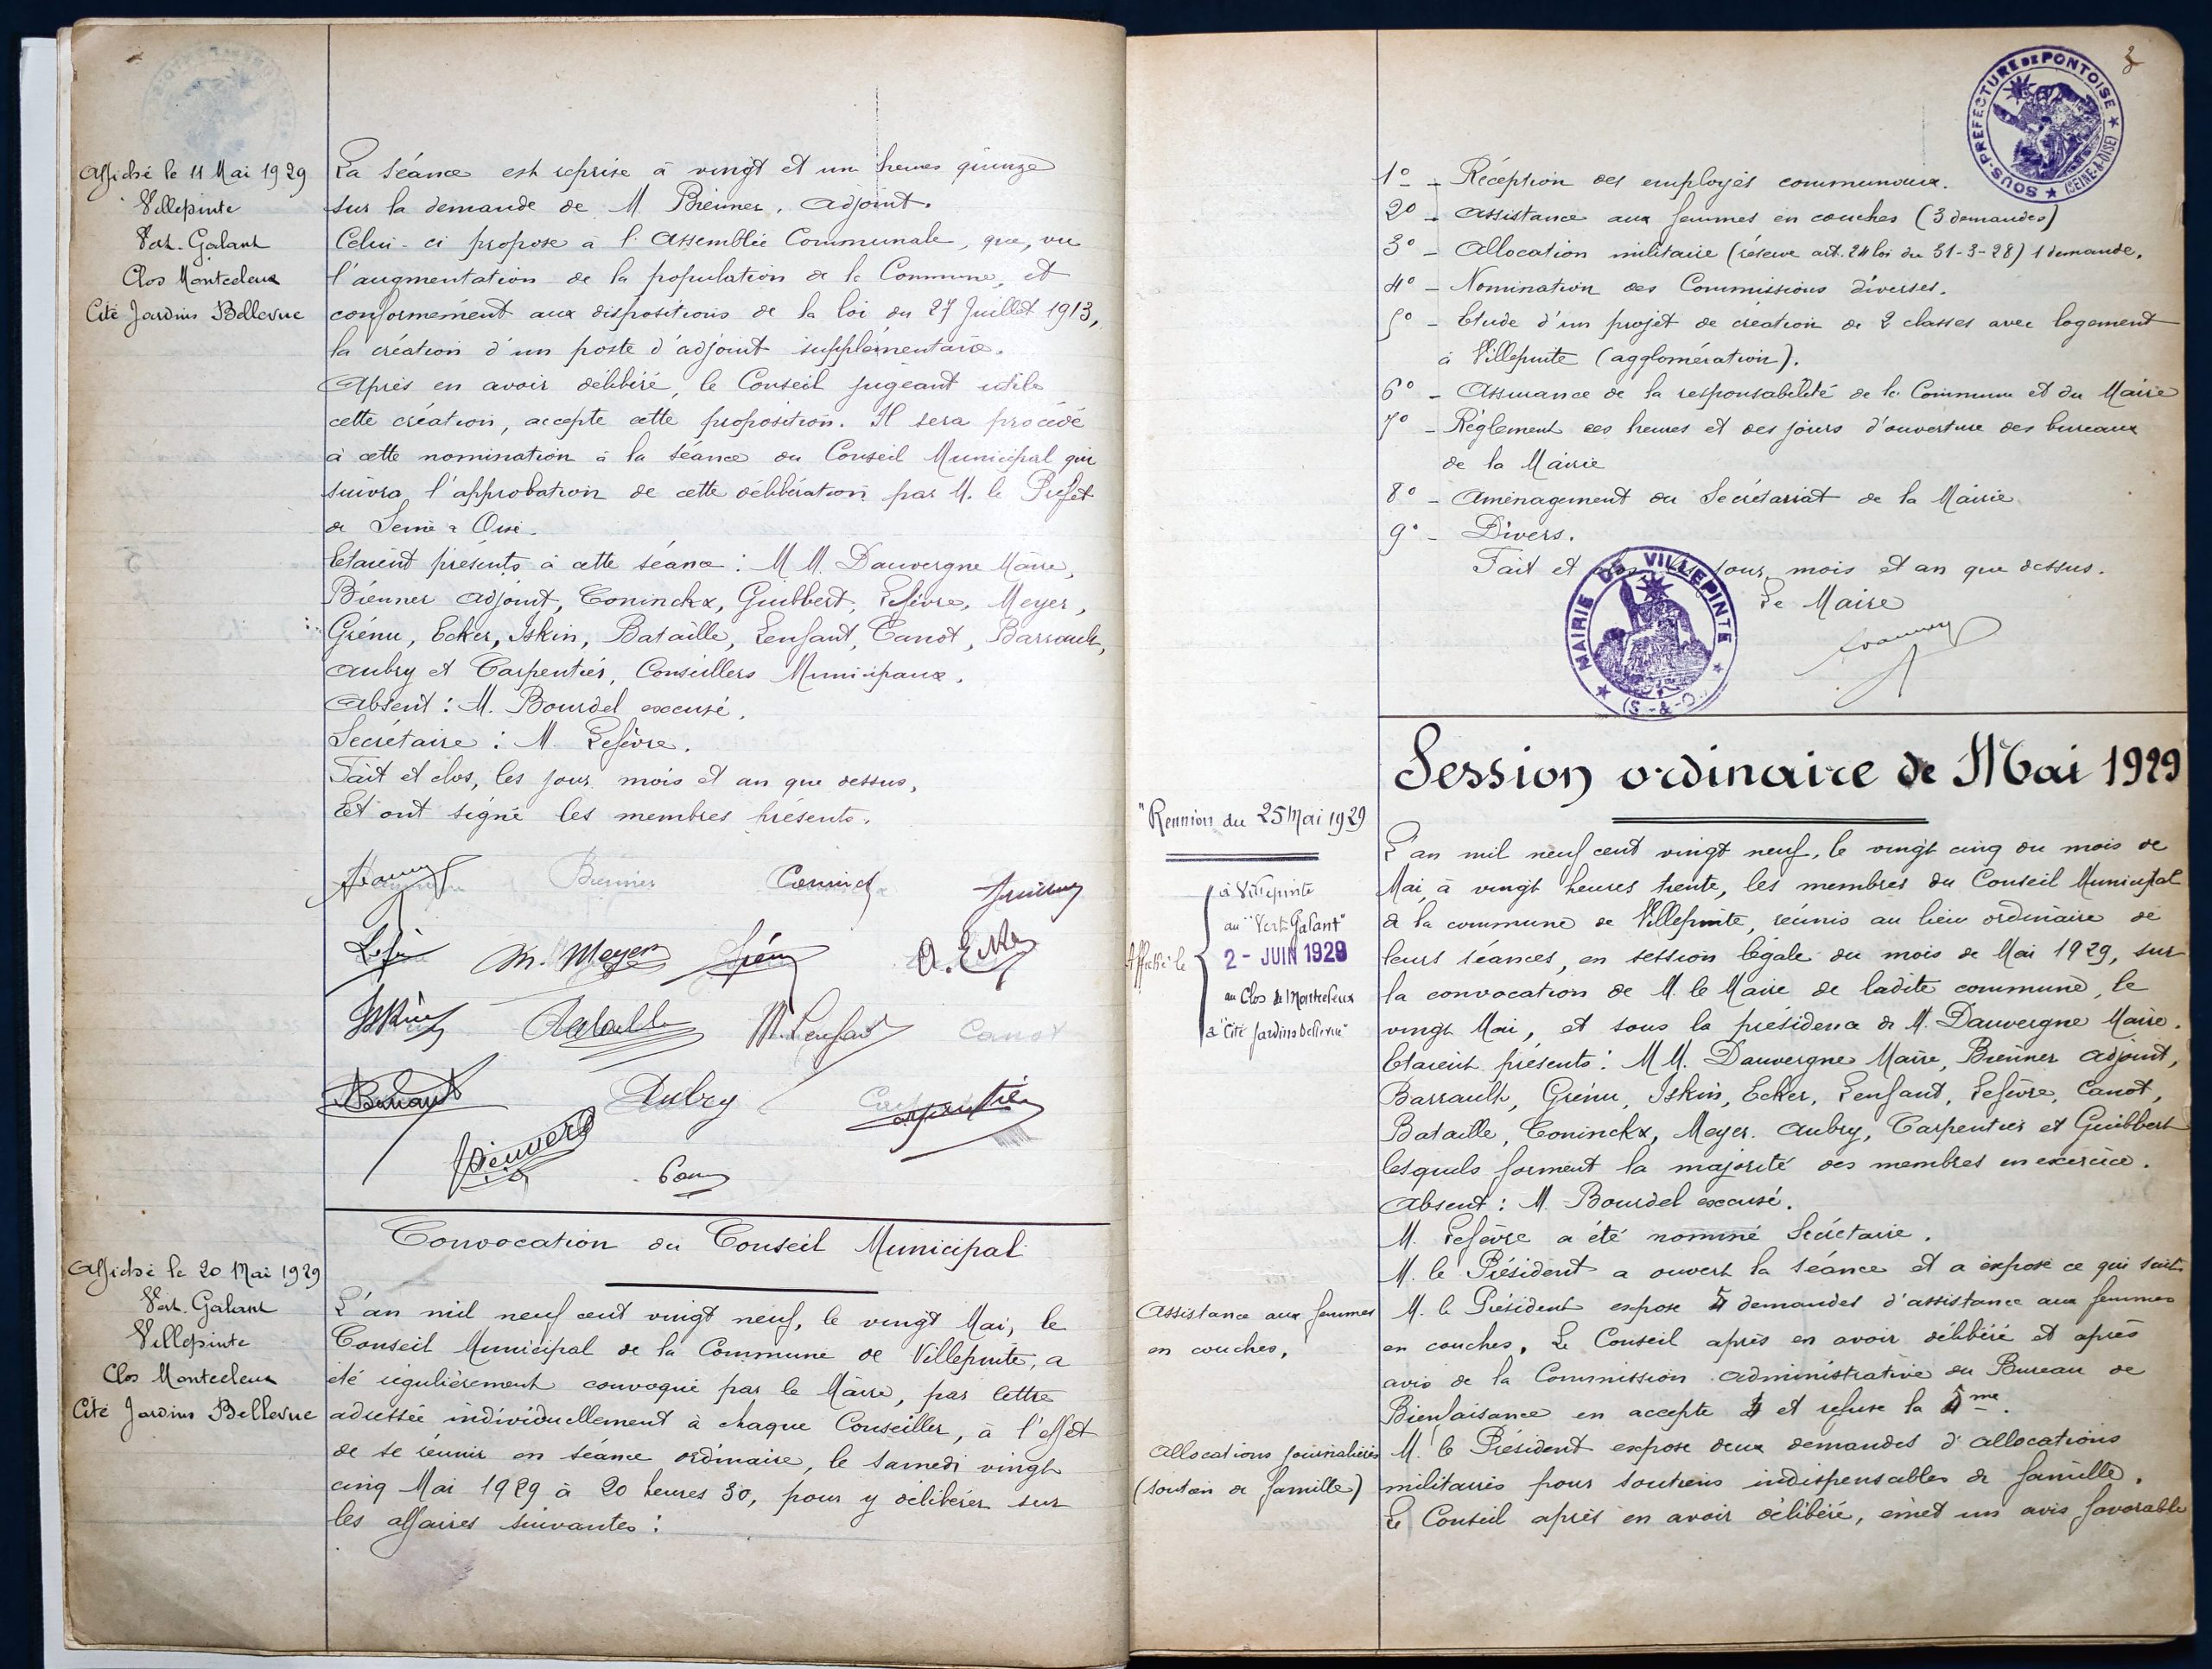 Affiché le 11 Mai 1929
Villepinte
Vert-Galant
Clos Montceleux
Cité Jardins Bellevue
La séance est reprise à vingt et une heures quinze
sur la demande de M Brenner, adjoint.
Celui-ci propose à l'Assemblée Communale, que, vu
l'augmentation de la population de la Commune, et
conformément aux dispositions de la loi du 27 Juillet 1913,
la création d'un poste d'adjoint supplémentaire.
Après en avoir délibéré, le Conseil jugeant utile
cette création, accepte cette proposition. Il sera procédé
à cette nomination à la séance du Conseil Municipal qui
suivra l'approbation de cette délibération par M. le Préfet
de Seine & Oise.
Etaient présents à cette séance : M M. Dauvergne Maire,
Brenner adjoint, Coninckx, Guibbert, Lefèvre, Meyer,
Grénu, Ecker, Iskin, Bataille, Lenfant, Canot, Barrault,
Aubry et Carpentier, Conseillers Municipaux.
Absent : M. Bourdel excusé.
Secrétaire : M. Lefèvre.
Fait et clos, les jour mois et an que dessus,
Et ont signé les membres présents.
Brenner Coninckx
M. Meyer
Iskin Bataille M. Lenfant Canot
Barrault Aubry Carpentier
Convocation du Conseil Municipal
Affiché le 20 Mai 1929
Vert-Galant
Villepinte
Clos Montceleux
Cité Jardins Bellevue
L'an mil neuf cent vingt neuf, le vingt Mai, le
Conseil Municipal de la Commune de Villepinte, a
été régulièrement convoqué par le Maire, par lettre
adressée individuellement à chaque Conseiller, à l'effet
de se réunir en séance ordinaire, le samedi vingt
cinq Mai 1929 à 20 heures 30, pour y délibérer sur
les affaires suivantes :
3
SOUS-PRÉFECTURE DE PONTOISE
(SEINE-&-OISE)
1° - Réception des employés communaux.
2° - Assistance aux femmes en couches (3 demandes)
3° - Allocation militaire (réserve art. 24 loi du 31-3-28) 1 demande.
4° - Nomination des Commissions diverses.
5° - Etude d'un projet de création de 2 classes avec logement
à Villepinte (agglomération).
6° - Assurance de la responsabilité de la Commune et du Maire
7° - Règlement des heures et des jours d'ouverture des bureaux
de la Mairie
8° - Aménagement du Secrétariat de la Mairie
9° - Divers.
Fait et clos les jour mois et an que dessus.
Le Maire
MAIRIE DE VILLEPINTE
(S-&-O.)
Session ordinaire de Mai 1929
"Réunion du 25 Mai 1929
Affiché le
à Villepinte
au "Vert-Galant"
2 - JUIN 1929
au Clos de Montceleux
à "Cité Jardins Bellevue"
L'an mil neuf cent vingt neuf, le vingt cinq du mois de
Mai, à vingt heures trente, les membres du Conseil Municipal
de la commune de Villepinte, réunis au lieu ordinaire de
leurs séances, en session légale du mois de Mai 1929, sur
la convocation de M. le Maire de ladite commune, le
vingt Mai, et sous la présidence de M. Dauvergne Maire.
Etaient présents : M M. Dauvergne Maire, Brenner adjoint,
Barrault, Grénu, Iskin, Ecker, Lenfant, Lefèvre, Canot,
Bataille, Coninckx, Meyer, Aubry, Carpentier et Guibbert
lesquels forment la majorité des membres en exercice.
Absent : M. Bourdel excusé.
M. Lefèvre a été nommé Secrétaire.
M. le Président a ouvert la séance et a exposé ce qui suit
Assistance aux femmes
en couches.
M. le Président expose 5 demandes d'assistance aux femmes
en couches. Le Conseil après en avoir délibéré et après
avis de la Commission administrative du Bureau de
Bienfaisance en accepte 4 et refuse la 5me.
Allocations journalières
(soutien de famille)
M. le Président expose deux demandes d'allocations
militaires pour soutiens indispensables de famille.
Le Conseil après en avoir délibéré, émet un avis favorable